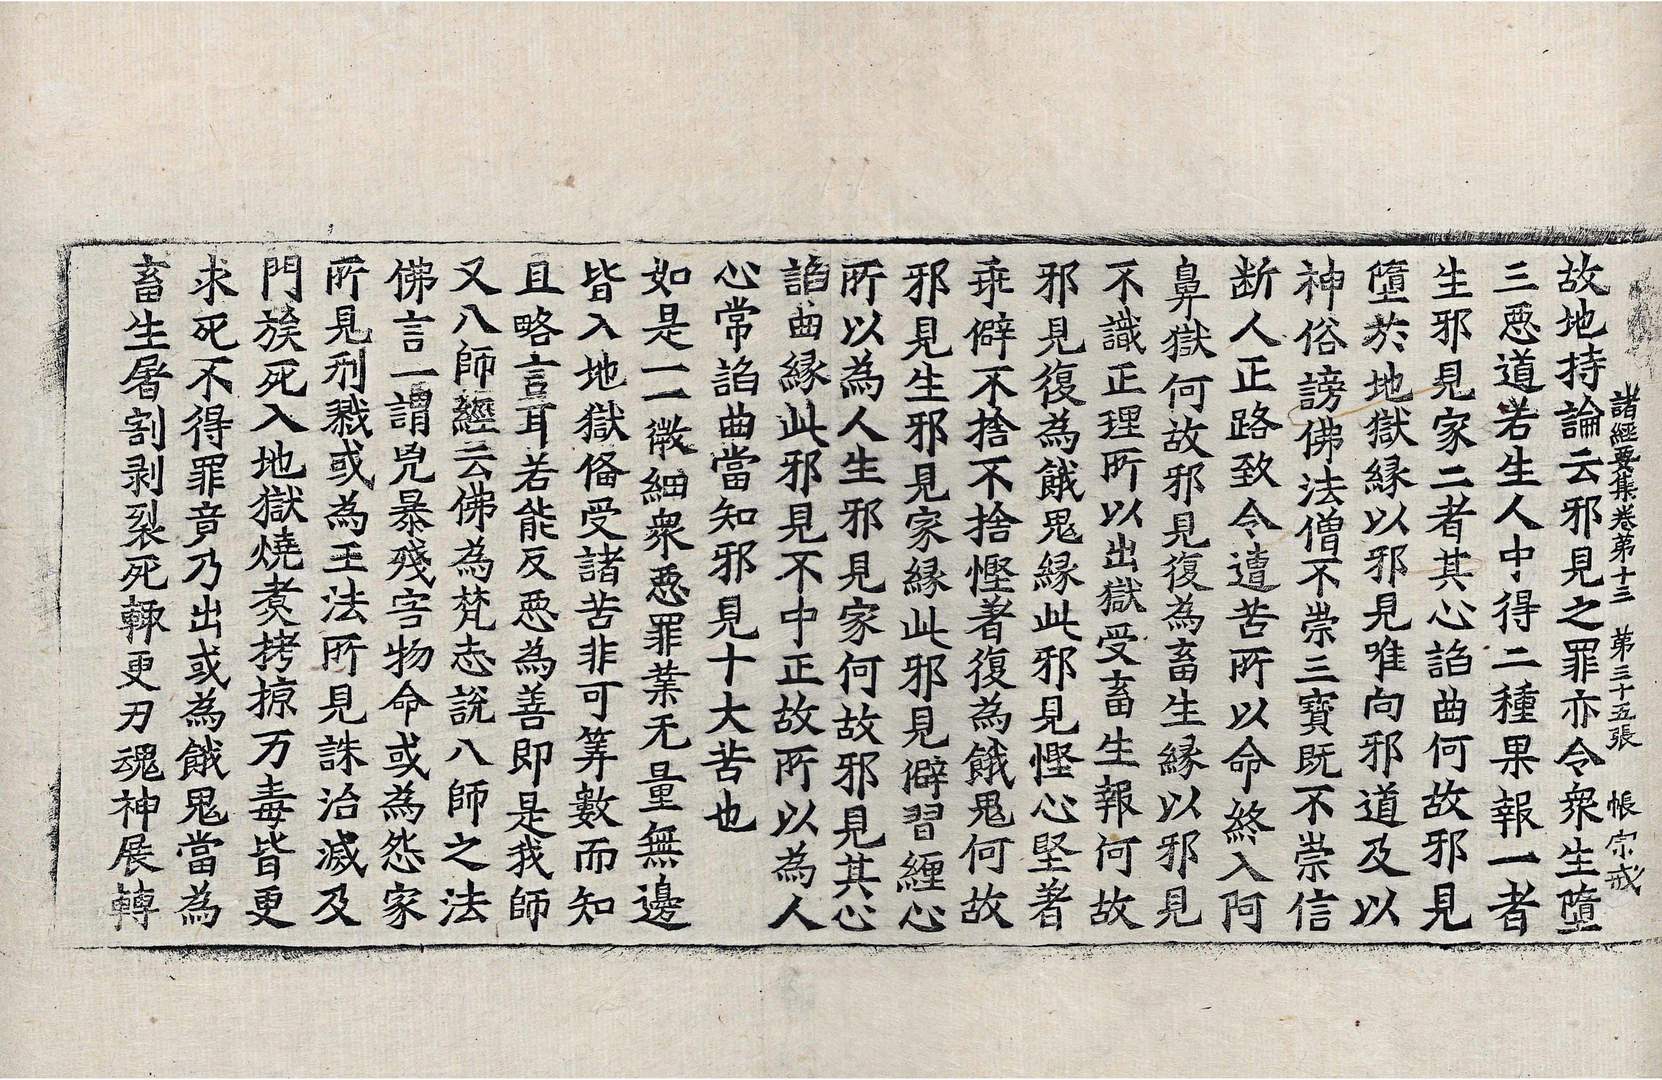 諸經要集卷第十三　第三十五張　帳宗戒
故地持論云邪見之罪亦令衆生墮
三惡道若生人中得二種果報一者
生邪見家二者其心諂曲何故邪見
墮於地獄緣以邪見唯向邪道及以
神俗謗佛法僧不崇三寶既不崇信
断人正路致令遭苦所以命終入阿
鼻獄何故邪見復為畜生緣以邪見
不識正理所以出獄受畜生報何故
邪見復為餓鬼緣此邪見慳心堅著
乖僻不捨不捨慳著復為餓鬼何故
邪見生邪見家緣此邪見僻習纏心
所以為人生邪見家何故邪見其心
諂曲緣此邪見不中正故所以為人
心常諂曲當知邪見十大苦也
如是一一微細衆惡罪業无量無邊
皆入地獄俻受諸苦非可筭數而知
且略言耳若能反惡為善即是我師
又八師經云佛為梵志說八師之法
佛言一謂兇暴殘害物命或為怨家
所見刑戮或為王法所見誅治滅及
門族死入地獄燒煑拷掠万毒皆更
求死不得罪竟乃出或為餓鬼當為
畜生屠割剥裂死輙更刃魂神展轉